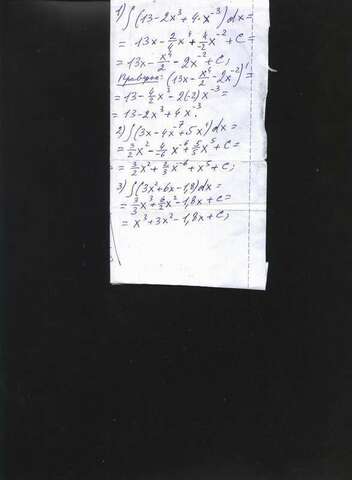 1) ∫(13-2x³+4·x⁻³)dx=
= 13x - 2/4 x⁴ + 4/-2 x⁻² + C =
= 13x - x⁴/2 - 2x⁻² + C;
(13x - x⁴/2 - 2x⁻²)' =
= 13 - 4/2 x³ - 2(-2)x⁻³ =
= 13 - 2x³ + 4x⁻³.
2) ∫(3x - 4x⁻⁷ + 5x⁴)dx =
= 3/2 x² - 4/-6 x⁻⁶ + 5/5 x⁵ + C =
= 3/2 x² + 2/3 x⁻⁶ + x⁵ + C;
3) ∫(3x² + 6x - 1,8)dx =
= 3/3 x³ + 6/2 x² - 1,8x + C =
= x³ + 3x² - 1,8x + C;